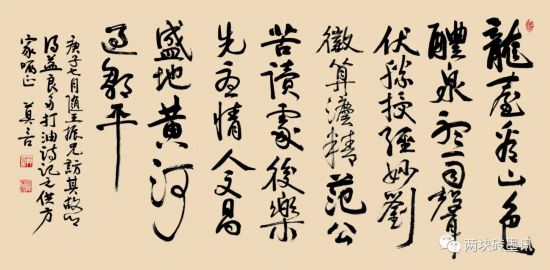 龍臺看山色
醴泉聽雨聲
伏勝授經妙劉
徽算灋精范公
苦讀處後樂
先憂情人文昌
盛地黄河
過鄒平
庚子七月隨王振兄訪其故
得益良多打油詩記之供方
家哂正 莫言
两块砖墨讯